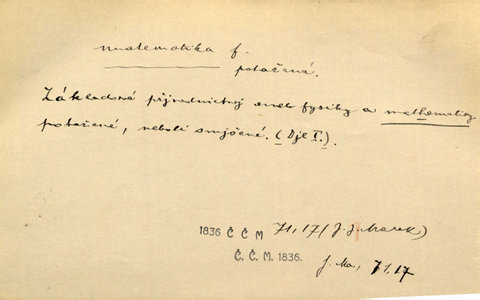 mathematika f.
potažená.
Základové přjrodnictwj aneb fysiky a mathematiky
potažené, neboli smjšené. (Djl I.).
1836 Č Č M 71, 17 (J. J. Marek)
Č. Č. M. 1836. J. Ma, 71.17